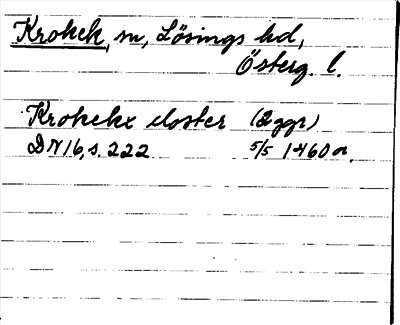 Krokek, sn, Lösings hd,
Österg. l.
Krokekx closter (2 ggr)
DN 16, s. 222 5/5 1460 or.